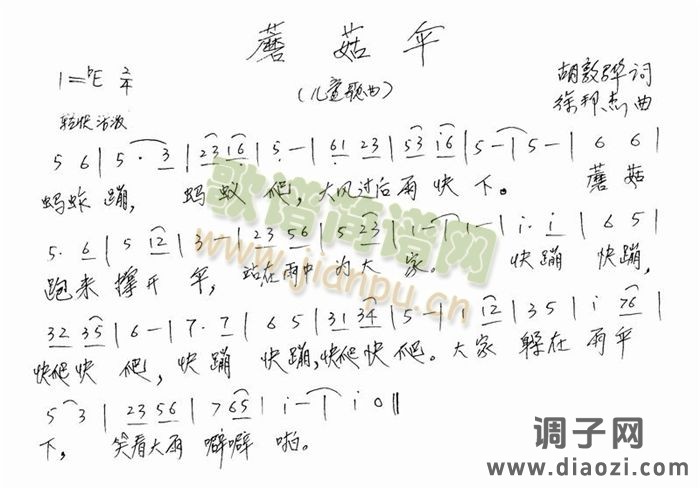 蘑菇伞
1=ᵇE 2/4
(儿童歌曲)
胡敦骅词
徐邦杰曲
轻快活泼
5 6 | 5 · 3 | 23 16 | 5 - | 61 23 | 53 16 | 5 - | 5 - | 6 6 |
蚂蚱蹦, 蚂蚁爬,大风过后雨快下。 蘑菇
5· 6 | 5 12 | 3 - | 23 56 | 5 23 | 1 - | 1 - | i· i | 6 5 |
跑来撑开伞, 站在雨中为大家。 快蹦快蹦,
32 35 | 6 - | 7· 7 | 6 5 | 31 34 | 5 - | 1 12 | 35 | i 76 |
快爬快爬, 快蹦快蹦,快爬快爬。大家躲在雨伞
5 3 | 23 56 | 7 65 | i - | i 0 ‖
下, 笑看大雨噼噼啪。
歌谱简谱网
www.jianpu.cn
调子网
www.diaozi.com